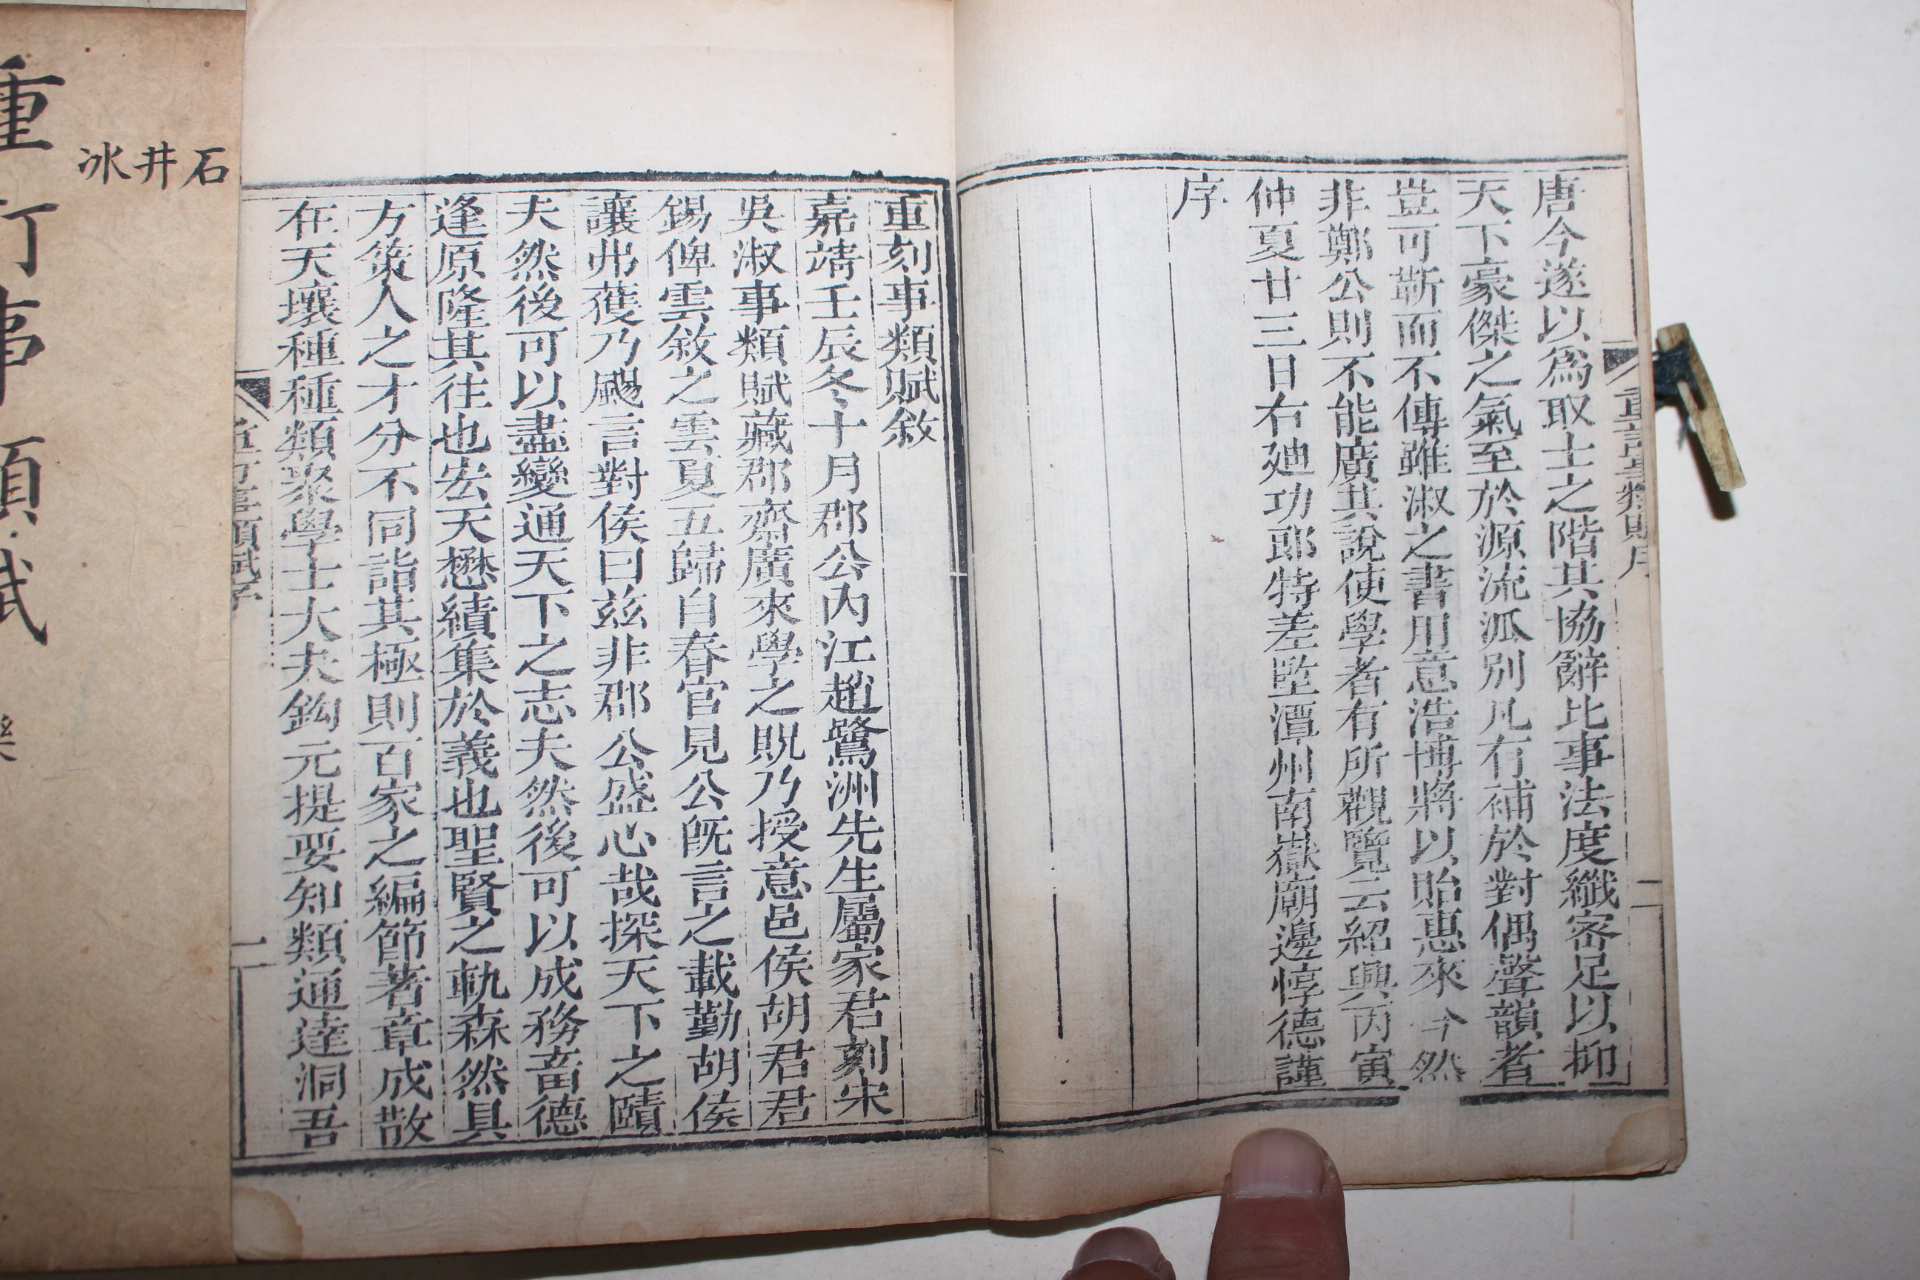 唐今遂以為取士之階其協辭比事法度纖密足以抑
天下豪傑之氣至於源流派別凡有補於對偶聲韻者
豈可靳而不傳雖淑之書用意浩博將以貽惠來今然
非鄭公則不能廣其說使學者有所觀覽云紹興丙寅
仲夏廿三日右廸功郎特差監潭州南嶽廟邊惇德謹
序
重刻事類賦敘
嘉靖壬辰冬十月郡公內江趙鷺洲先生屬家君刻宋
吳淑事類賦藏郡齋廣來學之貺乃授意邑侯胡君君
錫俾雲敘之雲夏五歸自春官見公旣言之載勤胡侯
讓弗獲乃颺言對侯曰茲非郡公盛心哉探天下之賾
夫然後可以盡變通天下之志夫然後可以成務畜德
逢原隆其往也宏天懋績集於義也聖賢之軌森然具
方策人之才分不同詣其極則百家之編節著章成散
在天壤種種類聚學士大夫鈎元提要知類通達洞吾
重訂事類賦
石井冰